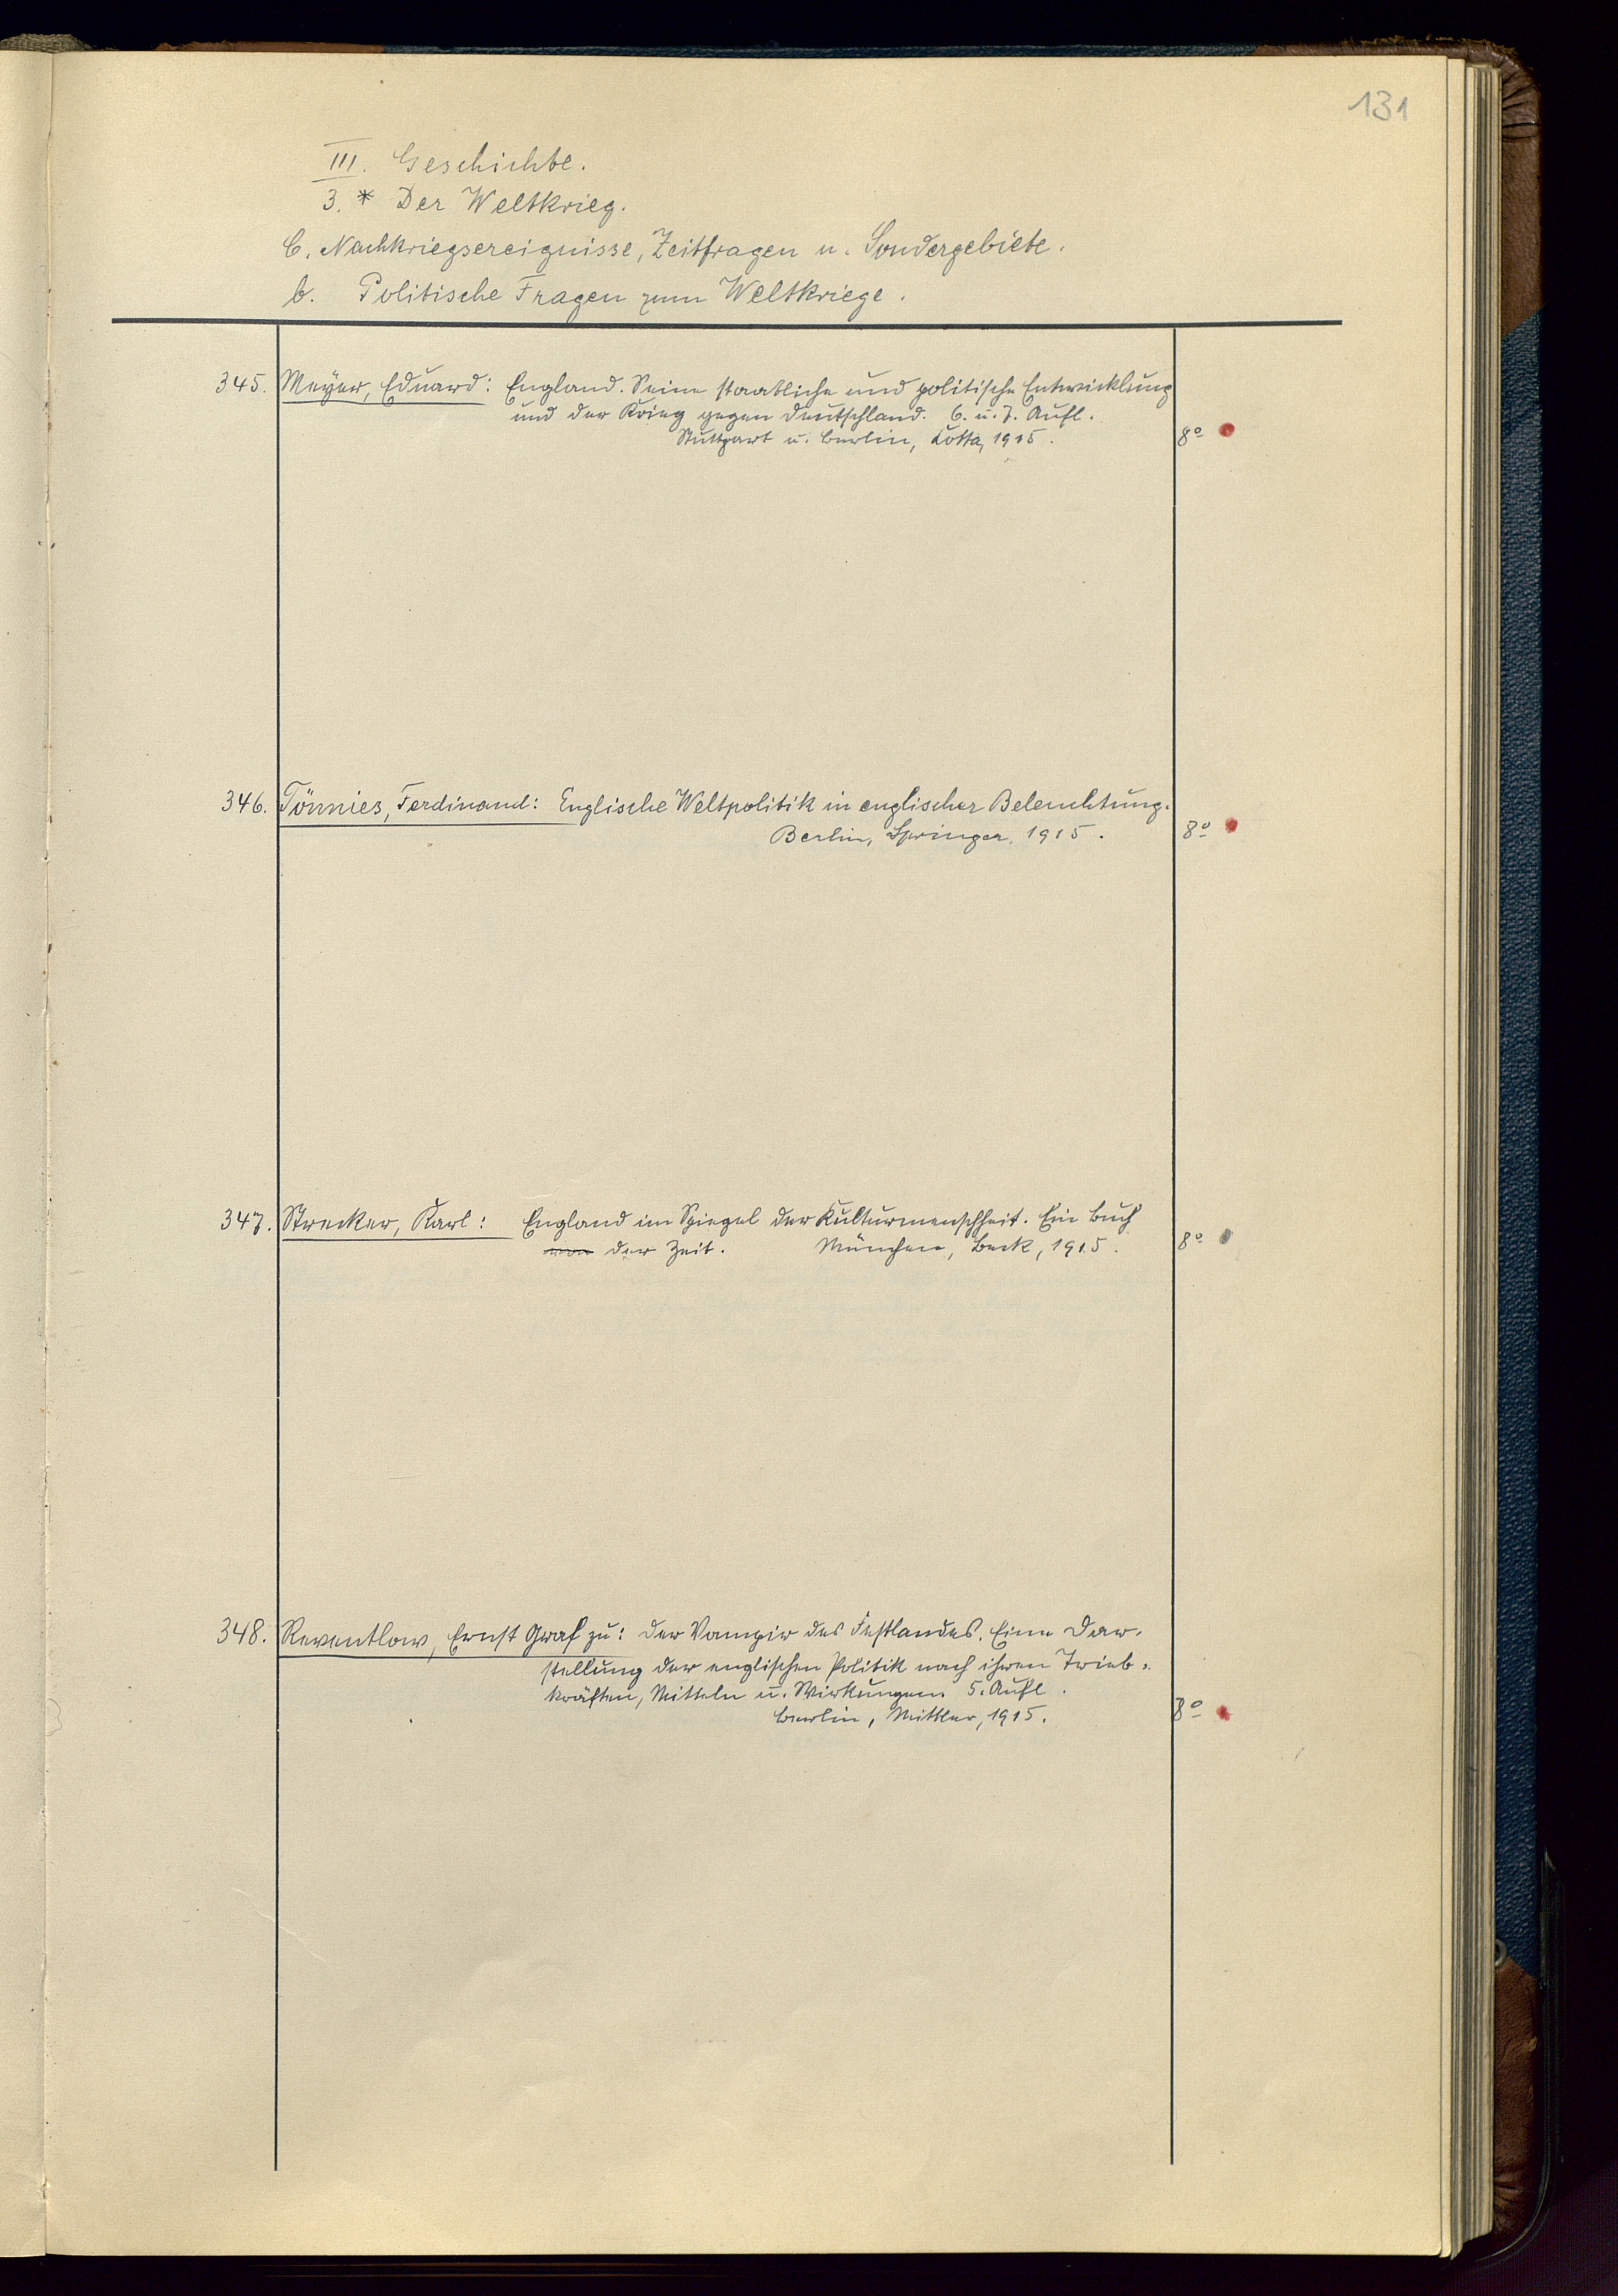 131
III. Geschichte.
3.* Der Weltkrieg.
C. Nachkriegsereignisse, Zeitfragen u. Sondergebiete.
b. Politische Fragen zum Weltkriege.
345. Meyer, Eduard: England. Seine staatliche und politische Entwicklung
und der Krieg gegen Deutschland. 6. u. 7. Aufl.
Stuttgart u. Berlin, Cotta, 1915. 8°
346. Tönnies, Ferdinand: Englische Weltpolitik in englischer Beleuchtung.
Berlin, Springer, 1915. 8°
347. Strecker, Karl: England im Spiegel der Kulturmenschheit. Ein Buch
der Zeit. München, Beck, 1915. 8°
348. Reventlow, Ernst Graf zu: Der Vampir des Festlandes. Eine Dar-
stellung der englischen Politik nach ihren Trieb-
kräften, Mitteln u. Wirkungen. 5. Aufl.
Berlin, Mittler, 1915. 8°